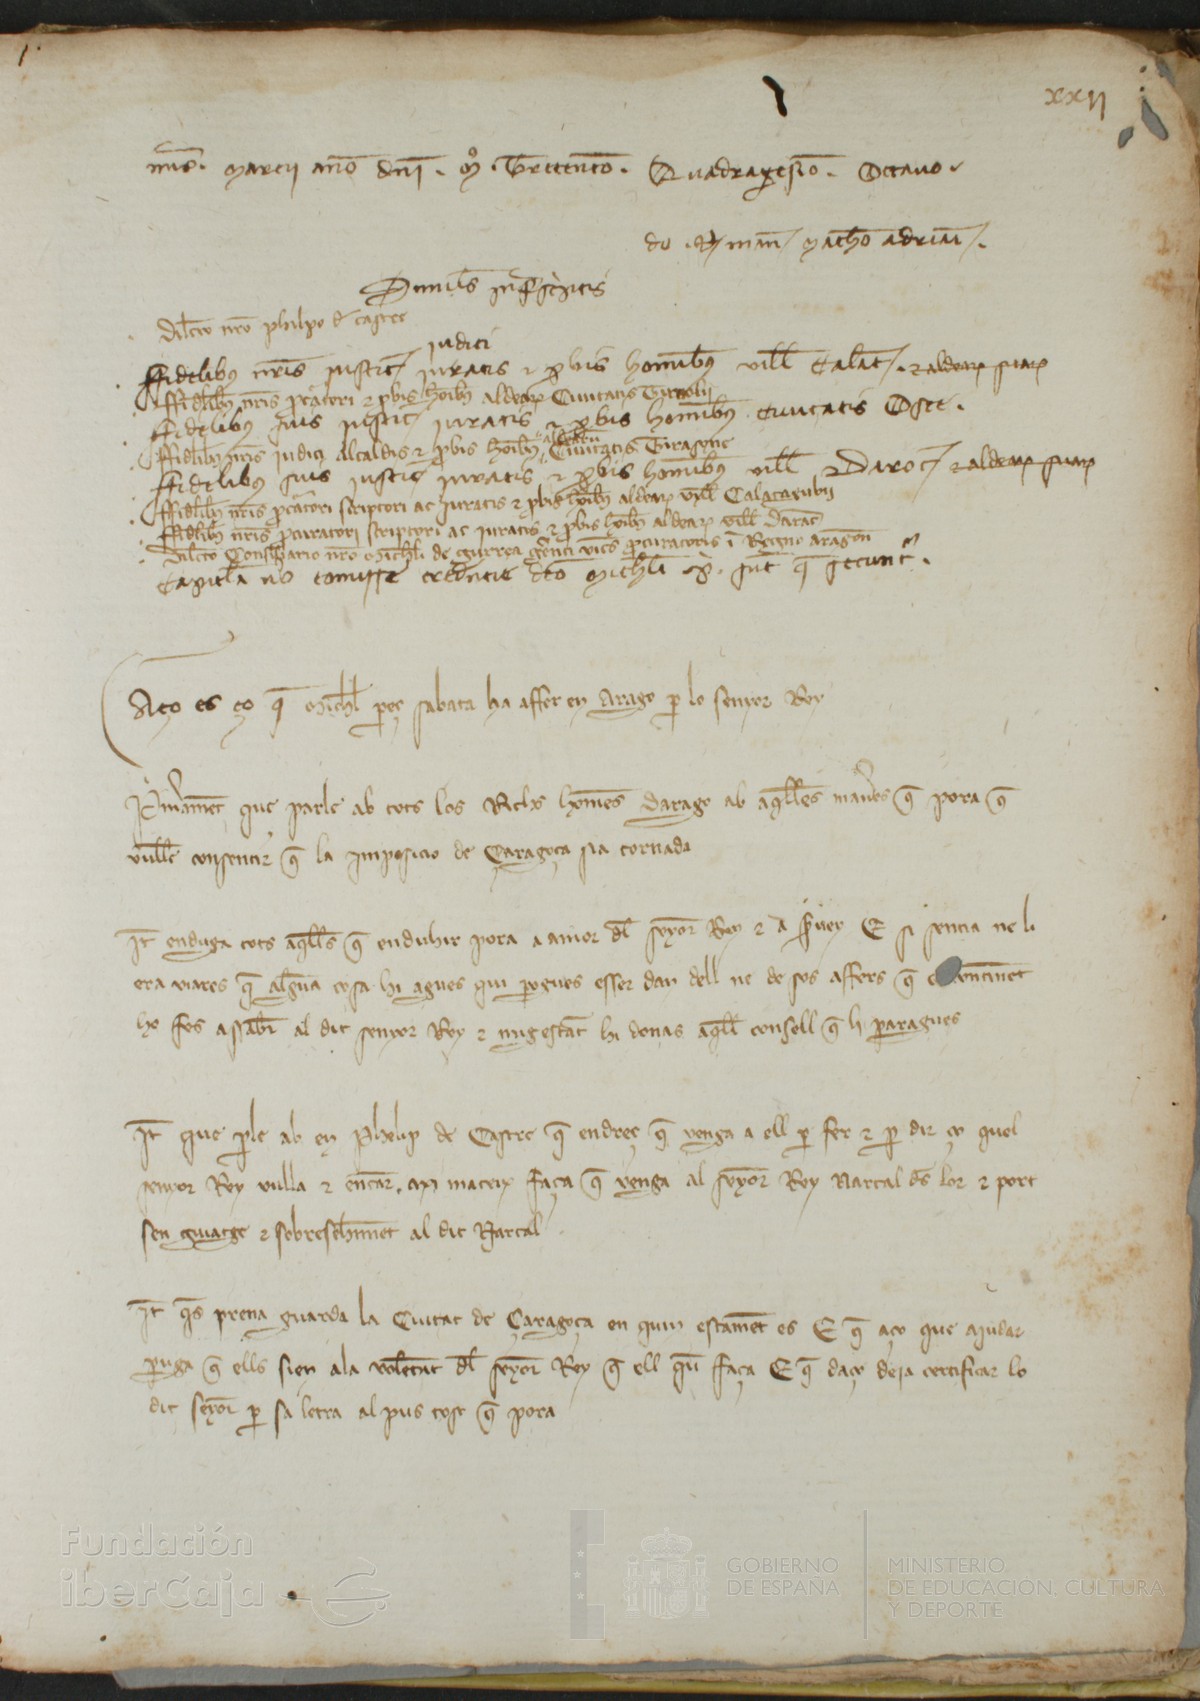 xxij
mẽs. marcij anno dñi. Mº. Trecenteo. Quadragesĩo. Octauo.
mand matheo adriañ.
Similes infrascriptis
dilecto nr̃o philipo de castre
judici
ffidelibus nr̃is justic̃ juratis et probis hominibus ville Calat. et aldearum suarum
ffidelibus nr̃is procuratori et probis hominibus aldearum Ciuitatis Turolij
ffidelibus suis justic̃ juratis et probis hominibus ciuitatis Osce.
ffidelibus nr̃is iudici alcaldis et probis hominibus Ciuitatis Tirasone
ffidelibus suis justic̃ juratis et probis hominibus ville Daroce et aldearum suarum
ffidelibus nr̃is procuratori scriptori ac juratis et probis hominibus aldearum ville Calatayubij
ffidelibus nr̃is procuratori scriptori ac juratis et probis hominibus aldearum ville daroc̃
dilecto Consiliario nr̃o Michaeli de gurrea gerenti vices procuratoris in Regno aragon̄
Capitula v̊o comisse credencie dc̃o Michaeli P̃. sunt que secuntur.
Aço es ço que Michel pereç sabata ha affer en Arago per lo senyor Rey
Primerament que parle ab tots los Richs homens Darago ab aquelles maneres que pora que
vullen consentir que la Imposicio de Çaragoça sia tornada
Item enduga tots aquells que enduhir pora a amor del senyor Rey e a seruey E si sentia ne li
era viares que alguna cosa hi agues qui pogues esser dan dell ne de sos affers que
ho fes a saber al dit senyor Rey e migestant hi donas aquell consell que li paragues
Item que parle ab en Phelip de Castre que endreç que venga a ell per fer e per dir ço quel
senyor Rey vulla e encara axi mateix faça que venga al senyor Rey Nartal de lor e port
sen guatge e sobresehiment al dit Nartal
Item ques prena guarda la Ciutat de Çaragoça en quin estament es E que aço que ajudar
puga que ells sien ala volentat del senyor Rey que ell quen faça E que daço deja certificar lo
dit senyor per sa letra al pus tost que pora
Fundación
iberCaja
GOBIERNO
DE ESPAÑA
MINISTERIO
DE EDUCACIÓN, CULTURA
Y DEPORTE